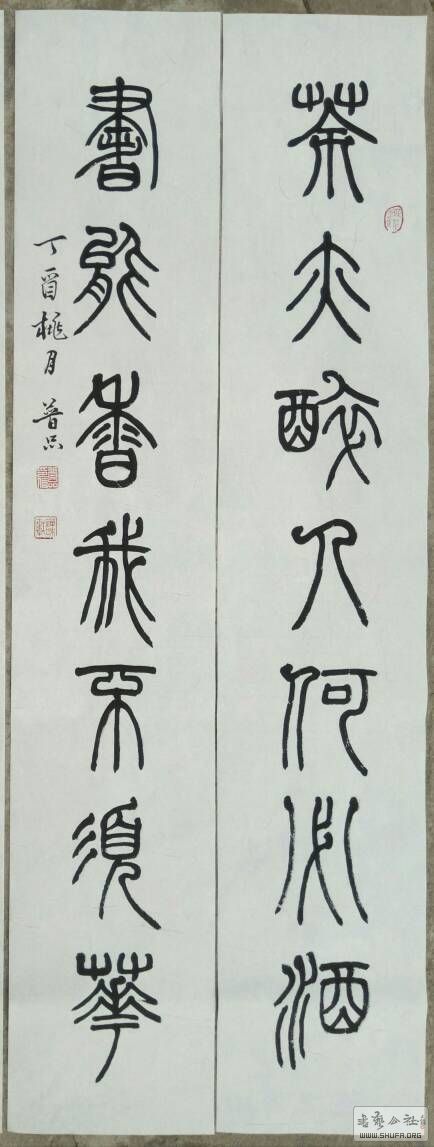 茶亦醉人何必酒
書能香我不須華
丁酉桃月 普品
书艺公社
WWW.SHUFA.ORG